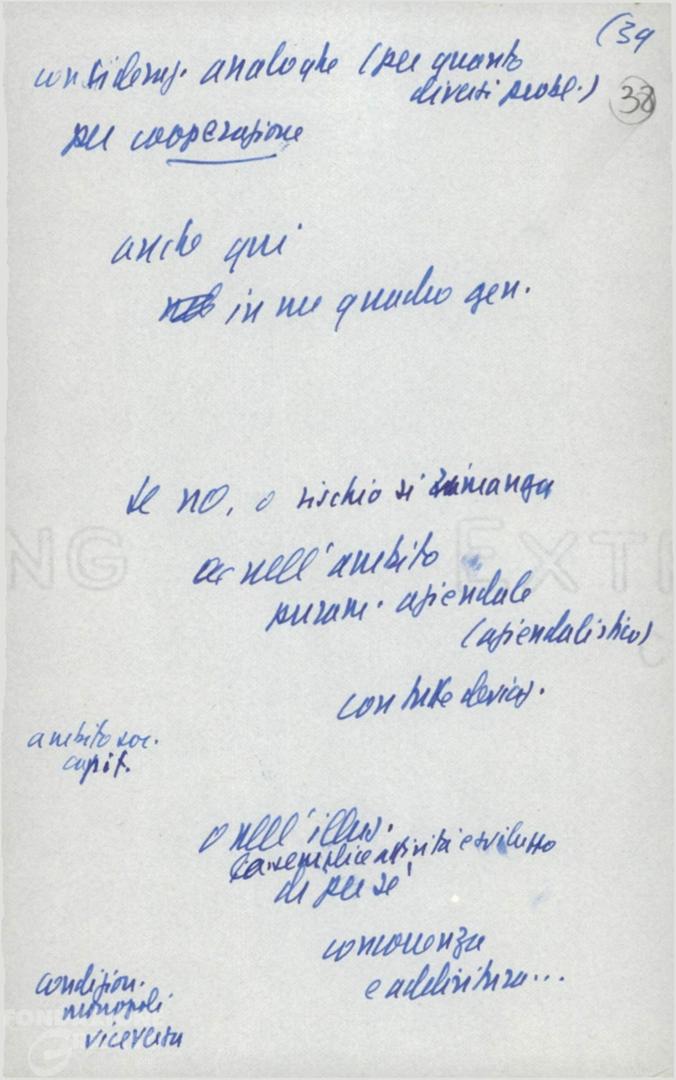 (39
consideraz. analoghe (per quanto
diversi probl.)
38
per cooperazione
anche qui
in un quadro gen.
se no, o rischio si rimanga
nell'ambito
puram. aziendale
(aziendalistico)
con tutte deviaz.
ambito soc.
capit.
o nell'illus.
semplice attività e sviluppo
di per sé
concorrenza
e addirittura...
condizion.
monopoli
viceversa
NG EXT
FONDAZIONE